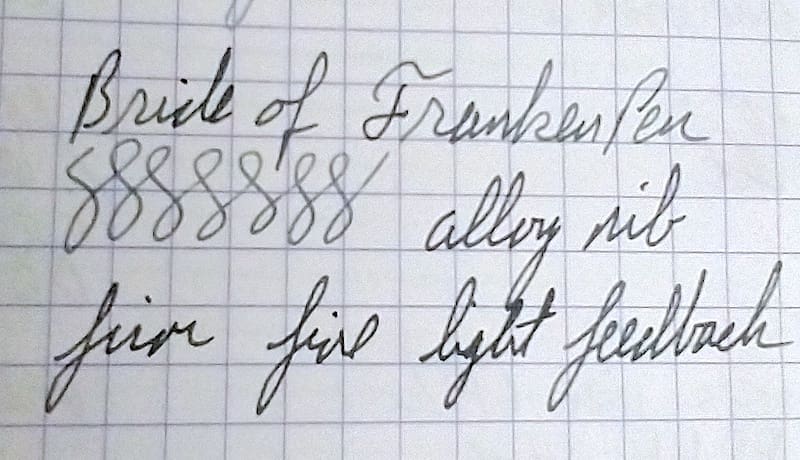 Bride of FrankenPen
88888888 alloy nib
firm fine light feedback